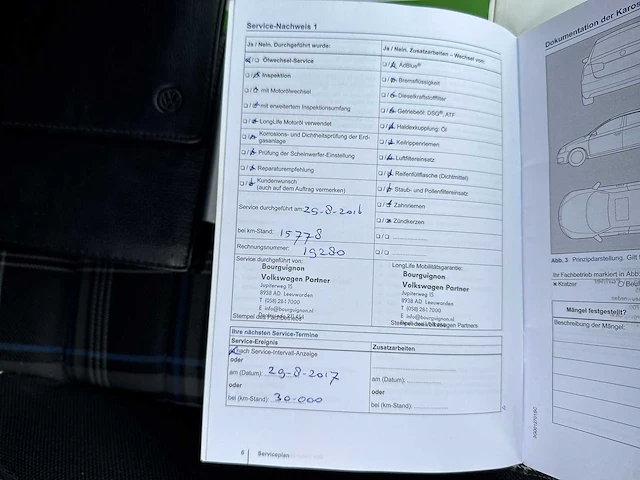 Service-Nachweis 1
Ja / Nein. Durchgeführt wurde:
Ölwechsel-Service
Inspektion
mit Motorölwechsel
mit erweitertem Inspektionsumfang
LongLife Motoröl verwendet
Korrosions- und Dichtheitsprüfung der Erd-
gasanlage
Prüfung der Scheinwerfer-Einstellung
Reparaturempfehlung
Kundenwunsch
(auch auf dem Auftrag vermerken)
Service durchgeführt am: 29-8-2016
bei km-Stand: 15778
Rechnungsnummer: 19280
Service durchgeführt von:
Bourguignon
Volkswagen Partner
Jupiterweg 15
8938 AD Leeuwarden
T (058) 284 7000
E info@bourguignon.nl
Stempel des Fachbetriebs
Ja / Nein. Zusatzarbeiten – Wechsel von:
AdBlue®
Bremsflüssigkeit
Dieselkraftstofffilter
Getriebeöl: DSG®, ATF
Haldexkupplung: Öl
Keilrippenriemen
Luftfiltereinsatz
Reifenfüllflasche (Dichtmittel)
Staub- und Pollenfiltereinsatz
Zahnriemen
Zündkerzen
LongLife Mobilitätsgarantie:
Bourguignon
Volkswagen Partner
Jupiterweg 15
8938 AD Leeuwarden
T (058) 284 7000
E info@bourguignon.nl
Stempel des Volkswagen Partners
Ihre nächsten Service-Termine
Service-Ereignis
nach Service-Intervall-Anzeige
oder
am (Datum): 29-8-2017
oder
bei (km-Stand): 30-000
Zusatzarbeiten
am (Datum):
oder
bei (km-Stand):
8 Serviceplan
Dokumentation der Karos
Abb. 3 Prinzipdarstellung. Gilt
Ihr Fachbetrieb markiert in Abb.
Kratzer
Mängel festgestellt?
Beschreibung der Mängel: